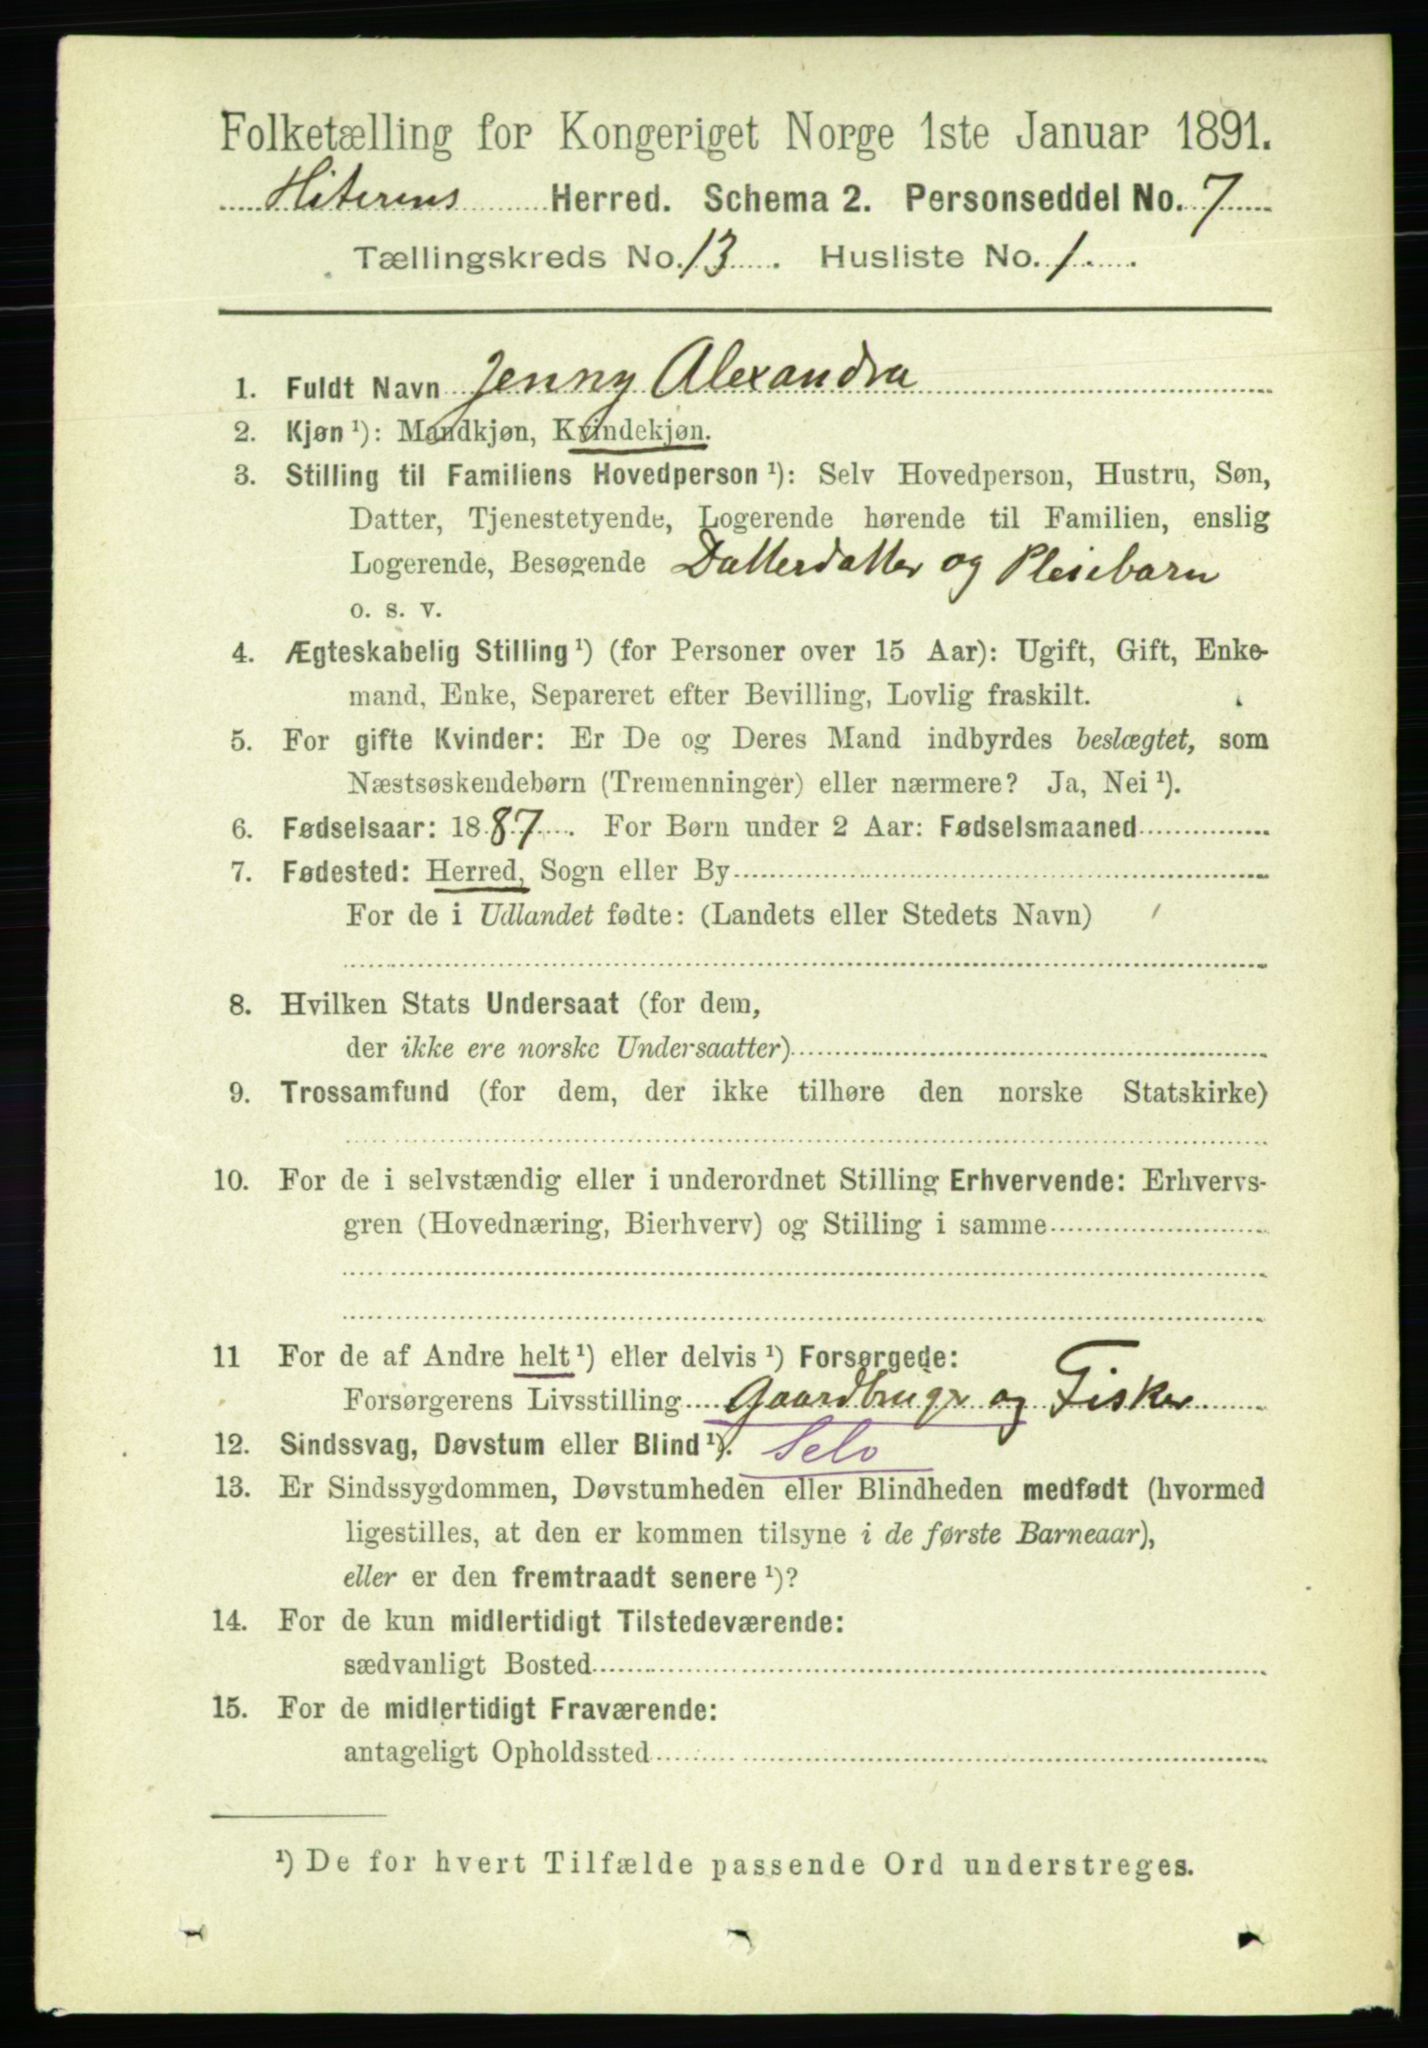 Folketælling for Kongeriget Norge 1ste Januar 1891.
Hiterens Herred. Schema 2. Personseddel No. 7
Tællingskreds No. 13. Husliste No. 1.
1. Fuldt Navn Jenny Alexandra
2. Kjøn¹): Mandkjøn, Kvindekjøn.
3. Stilling til Familiens Hovedperson¹): Selv Hovedperson, Hustru, Søn,
Datter, Tjenestetyende, Logerende hørende til Familien, enslig
Logerende, Besøgende Datterdatter og Pleiebarn
o. s. v.
4. Ægteskabelig Stilling¹) (for Personer over 15 Aar): Ugift, Gift, Enke-
mand, Enke, Separeret efter Bevilling, Lovlig fraskilt.
5. For gifte Kvinder: Er De og Deres Mand indbyrdes beslægtet, som
Næstsøskendebørn (Tremenninger) eller nærmere? Ja, Nei¹).
6. Fødselsaar: 1887. For Børn under 2 Aar: Fødselsmaaned
7. Fødested: Herred, Sogn eller By
For de i Udlandet fødte: (Landets eller Stedets Navn)
8. Hvilken Stats Undersaat (for dem,
der ikke ere norske Undersaatter)
9. Trossamfund (for dem, der ikke tilhøre den norske Statskirke)
10. For de i selvstændig eller i underordnet Stilling Erhvervende: Erhvervs-
gren (Hovednæring, Bierhverv) og Stilling i samme
11 For de af Andre helt¹) eller delvis¹) Forsørgede:
Forsørgerens Livsstilling Gaardbrugr og Fisker
12. Sindssvag, Døvstum eller Blind¹). Selv
13. Er Sindssygdommen, Døvstumheden eller Blindheden medfødt (hvormed
ligestilles, at den er kommen tilsyne i de første Barneaar),
eller er den fremtraadt senere¹)?
14. For de kun midlertidigt Tilstedeværende:
sædvanligt Bosted
15. For de midlertidigt Fraværende:
antageligt Opholdssted
¹) De for hvert Tilfælde passende Ord understreges.